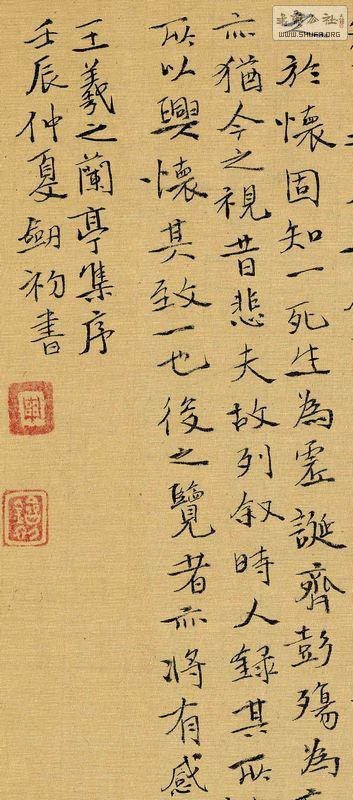 於懷固知一死生為虛誕齊彭殤為
亦猶今之視昔悲夫故列叙時人錄其所
所以興懷其致一也後之覽者亦將有感
王羲之蘭亭集序
壬辰仲夏劍初書
書法公社
WWW.SHUFA.ORG